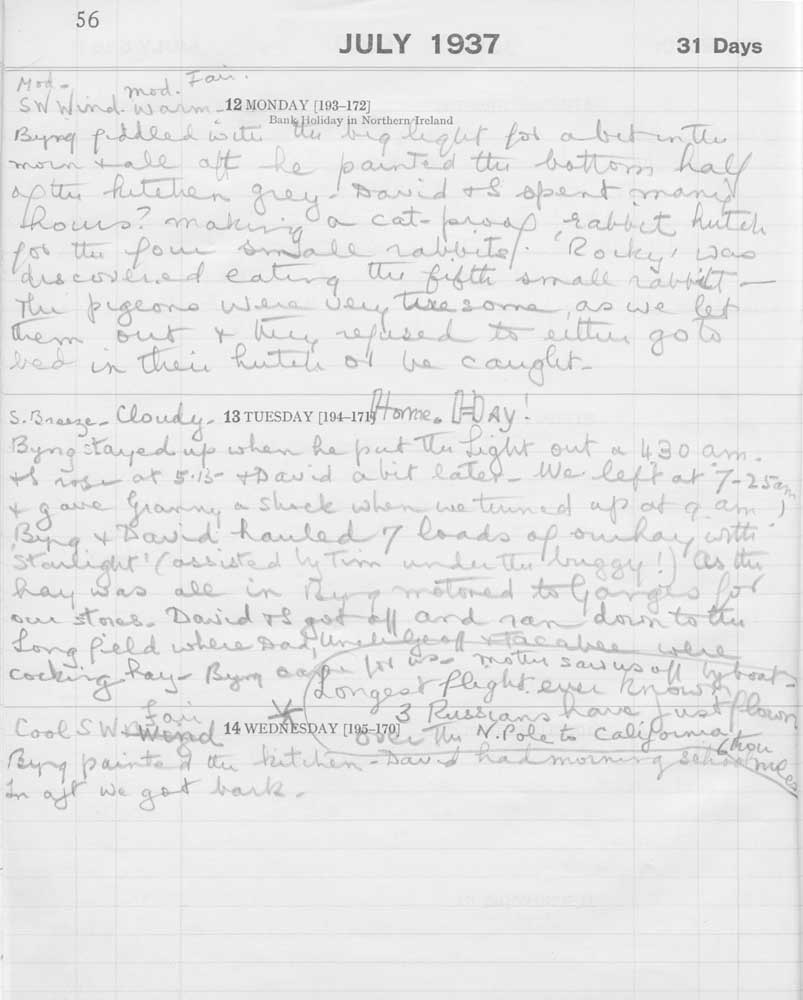 56
JULY 1937 31 Days
Mod- mod. Fair.
SW Wind. warm - 12 MONDAY [193–172]
Bank Holiday in Northern Ireland
Byng fiddled with the big light for a bit in the
morn & all aft he painted the bottom half
of the kitchen grey - David & I spent many
hours? making a cat-proof rabbit hutch
for the four small rabbits. 'Rocky' was
discovered eating the fifth small rabbit —
The pigeons were very tiresome, as we let
them out & they refused to either go to
bed in their hutch or be caught -
S. Breeze - Cloudy - 13 TUESDAY [194–171] Home. H-DAY!
Byng stayed up when he put the Light out a 430 am.
& I rose at 5.15 - & David a bit later - We left at 7-25am
& gave Granny a shock when we turned up at 9 am!
Byng & David hauled 7 loads of our hay with
'Starlight' (assisted by Tim under the buggy!) As the
hay was all in Byng motored to Ganges for
our stores - David & I got off and ran down to the
Long field where Dad, Uncle Geoff & were
cocking hay - Byng came for us - Motu saw us off by boat -
Longest flight ever known
3 Russians have just flown
over the N. Pole to California
6 thou
miles
Cool SW Fair Wind 14 WEDNESDAY [195–170]
Byng painted the kitchen - David had morning school
In aft we got bark -